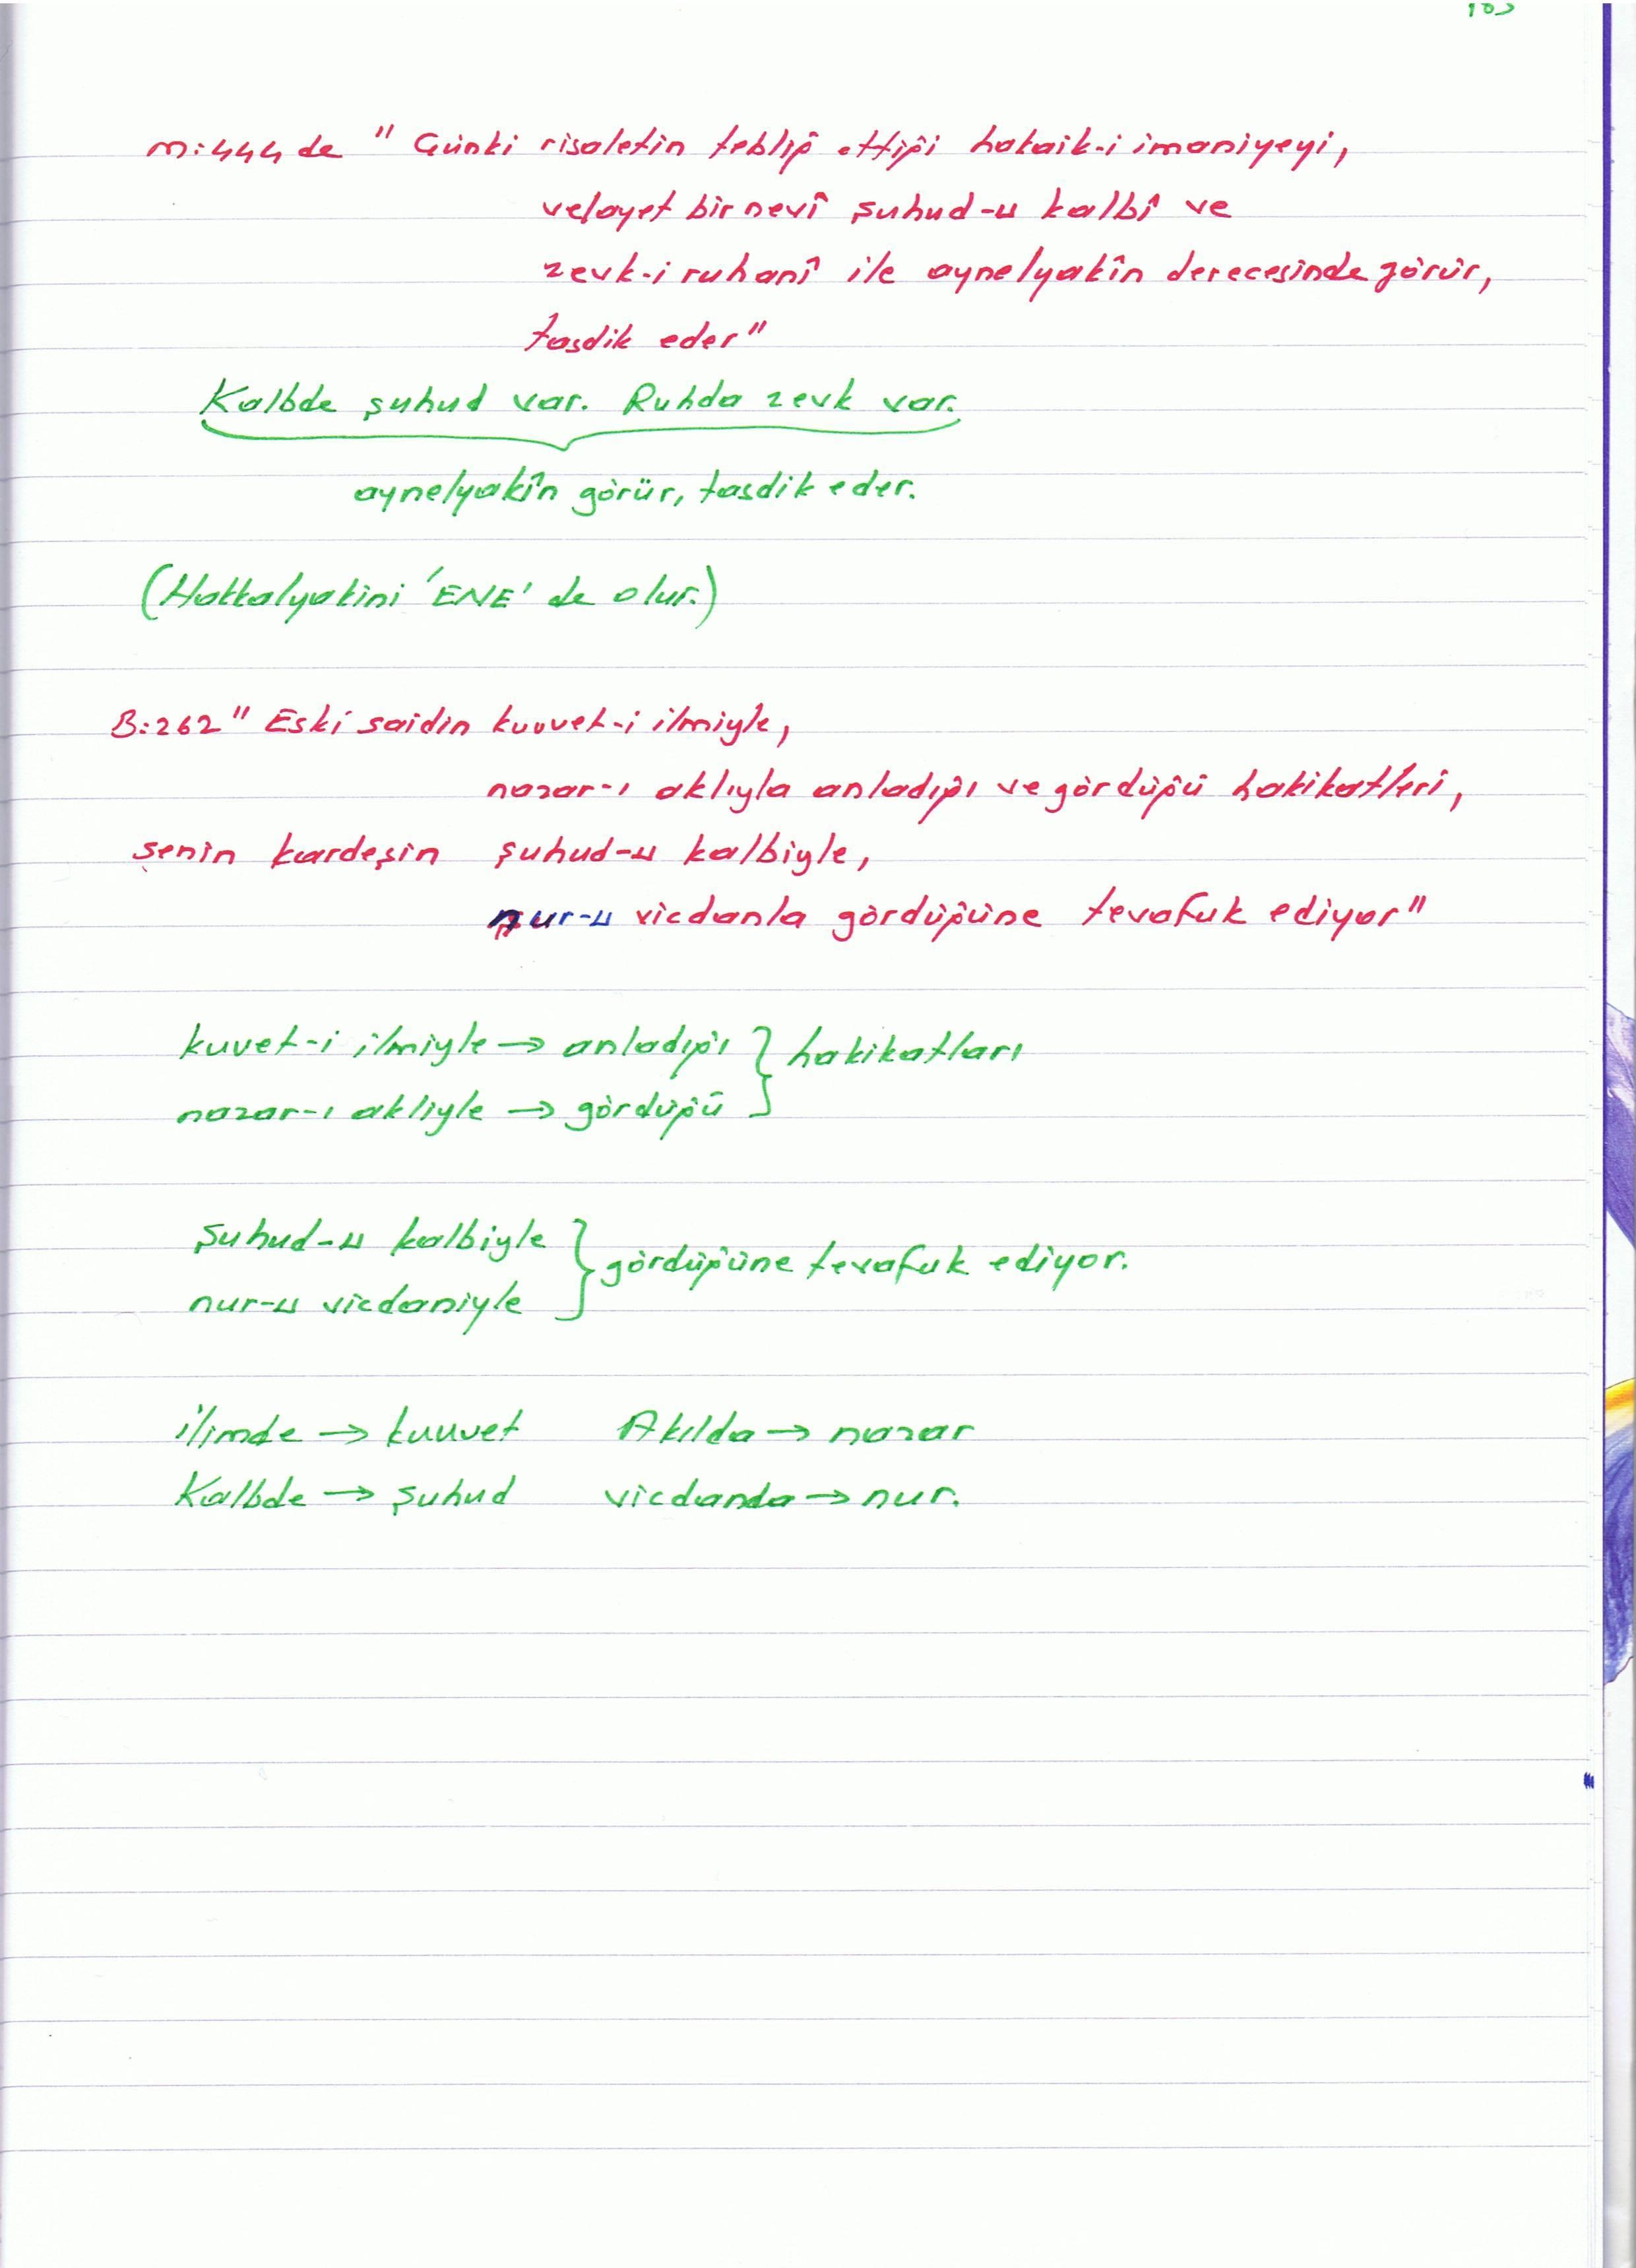 m:444 de " Çünki risaletin tebliğ ettiği hakaik-i imaniyeyi,
velayet bir nevî şuhud-u kalbî ve
zevk-i ruhanî ile aynelyakîn derecesinde görür,
tasdik eder"
Kalbde şuhud var. Ruhda zevk var.
aynelyakîn görür, tasdik eder.
(Hakkalyakini 'ENE' de olur.)
B:262 " Eski saidin kuvvet-i ilmiyle,
nazar-ı aklıyla anladığı ve gördüğü hakikatleri,
senin kardeşin şuhud-u kalbiyle,
nur-u vicdanla gördüğüne tevafuk ediyor"
kuvet-i ilmiyle → anladığı } hakikatları
nazar-ı akliyle → gördüğü
şuhud-u kalbiyle } gördüğüne tevafuk ediyor.
nur-u vicdaniyle
ilimde → kuvvet Akılda → nazar
Kalbde → şuhud vicdanda → nur.